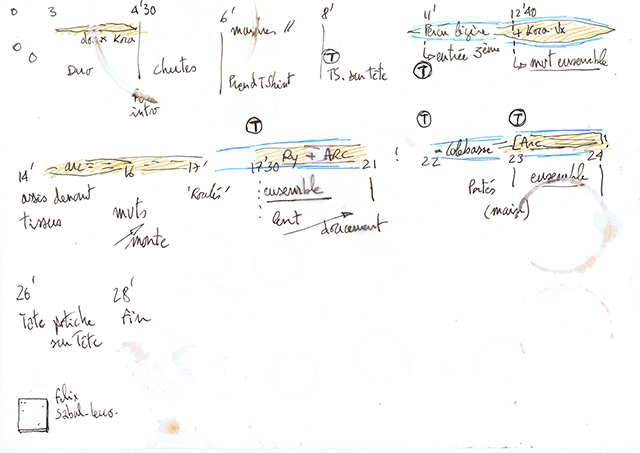 0 3 4'30 6' 8' 11' 12'40
0 0
doux Kora
marches //
Percu légère
+ Kora-Vx
Duo
chutes
Prend TShirt
T
TS. sur Tête
T
entrée 3ème
mvt ensemble
intro
T
T
T
14' arc 16 17' 17'30 Ry + ARC 21 ! 22 - Calebasse 23 Arc 24 !
assis devant
tissus
mvts
monte
'Roulés'
ensemble
lent
doucement
Portés
(main)
ensemble
26' 28'
Tête potiche
sur Tête
Fin
Felix
Sabal-Lecco.